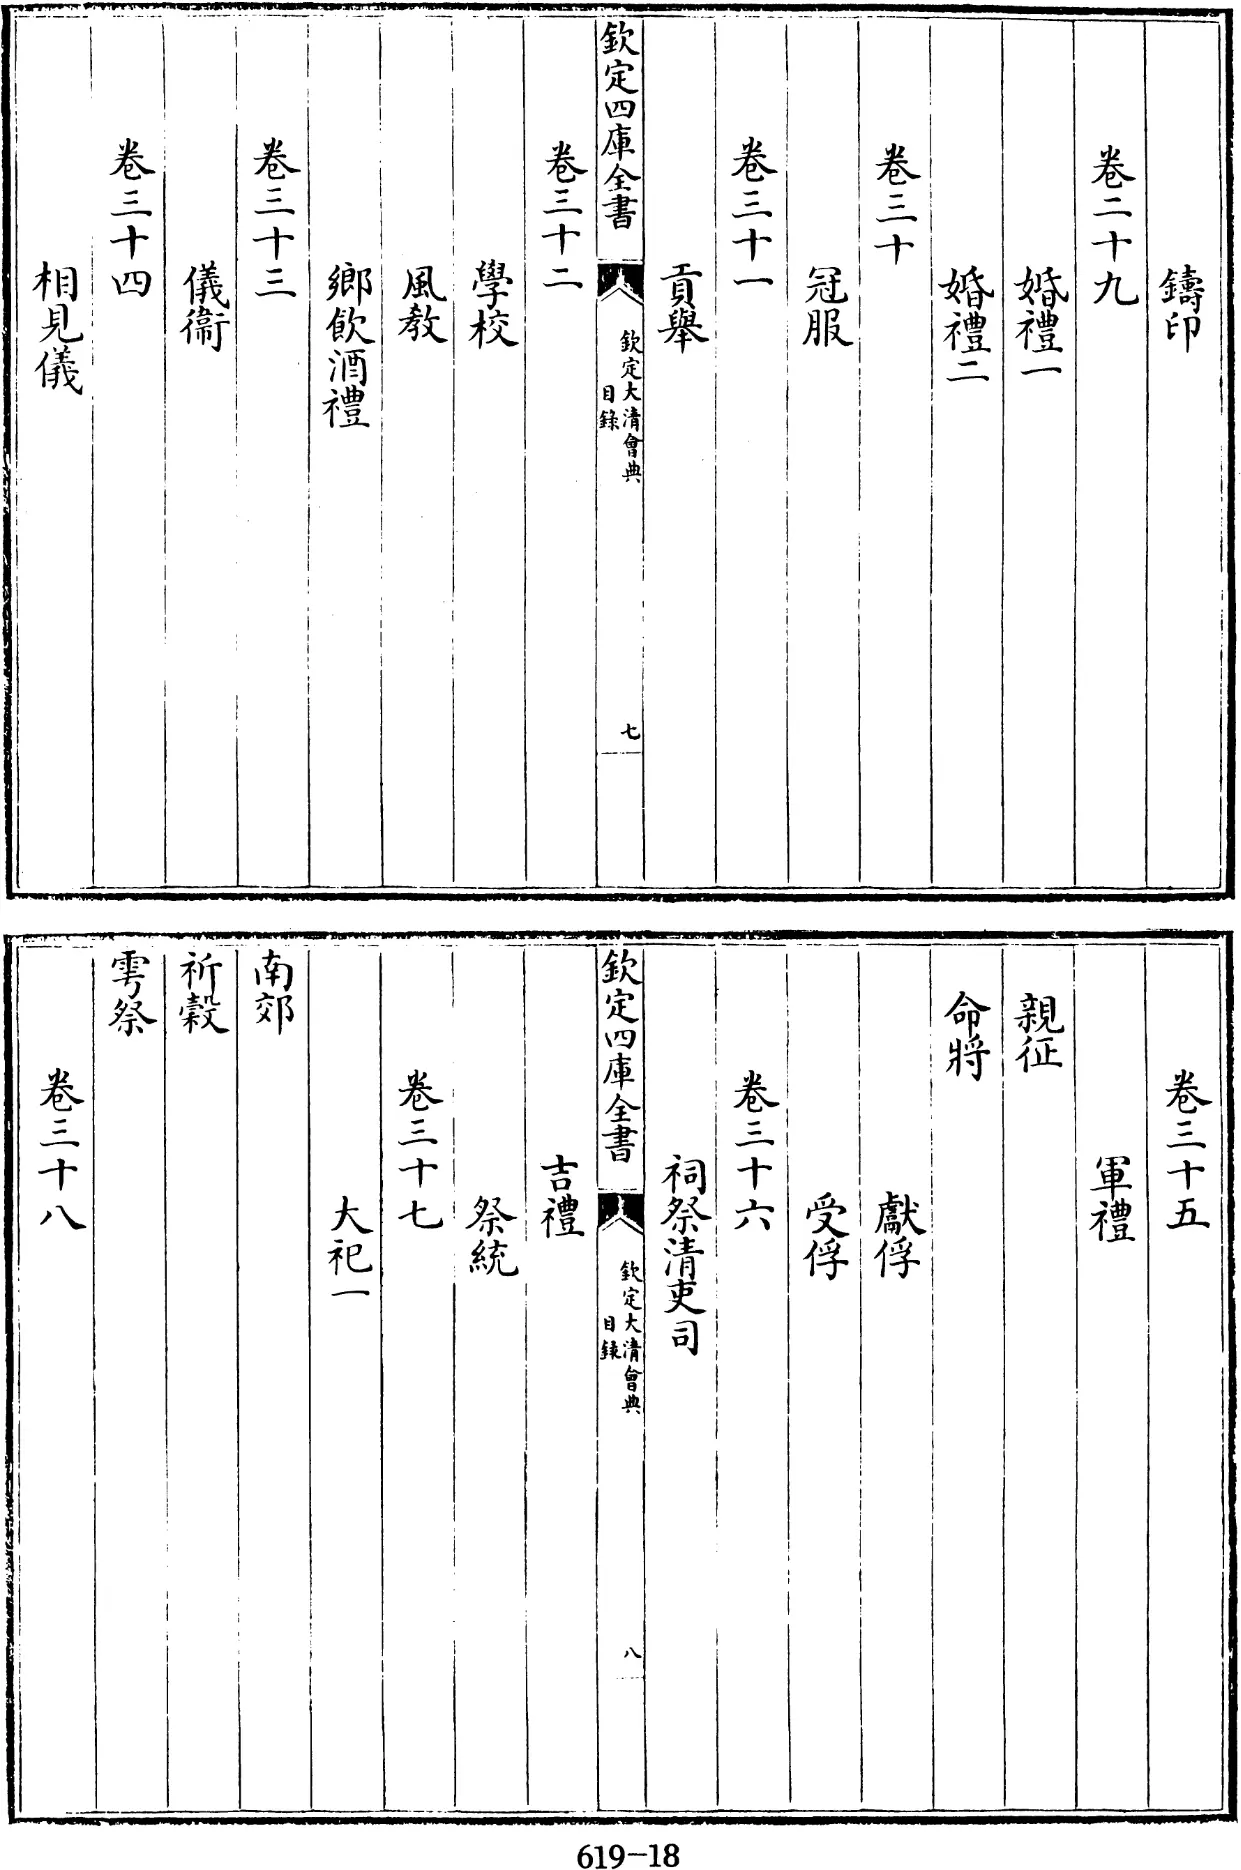 鑄印
卷二十九
婚禮一
婚禮二
卷三十
冠服
卷三十一
貢舉
欽定四庫全書
欽定大清會典
目錄
七
卷三十二
學校
風教
鄉飲酒禮
卷三十三
儀衛
卷三十四
相見儀
卷三十五
軍禮
親征
命將
獻俘
受俘
卷三十六
祠祭清吏司
欽定四庫全書
欽定大清會典
目錄
八
吉禮
祭統
卷三十七
大祀一
南郊
祈穀
雩祭
卷三十八
619-18